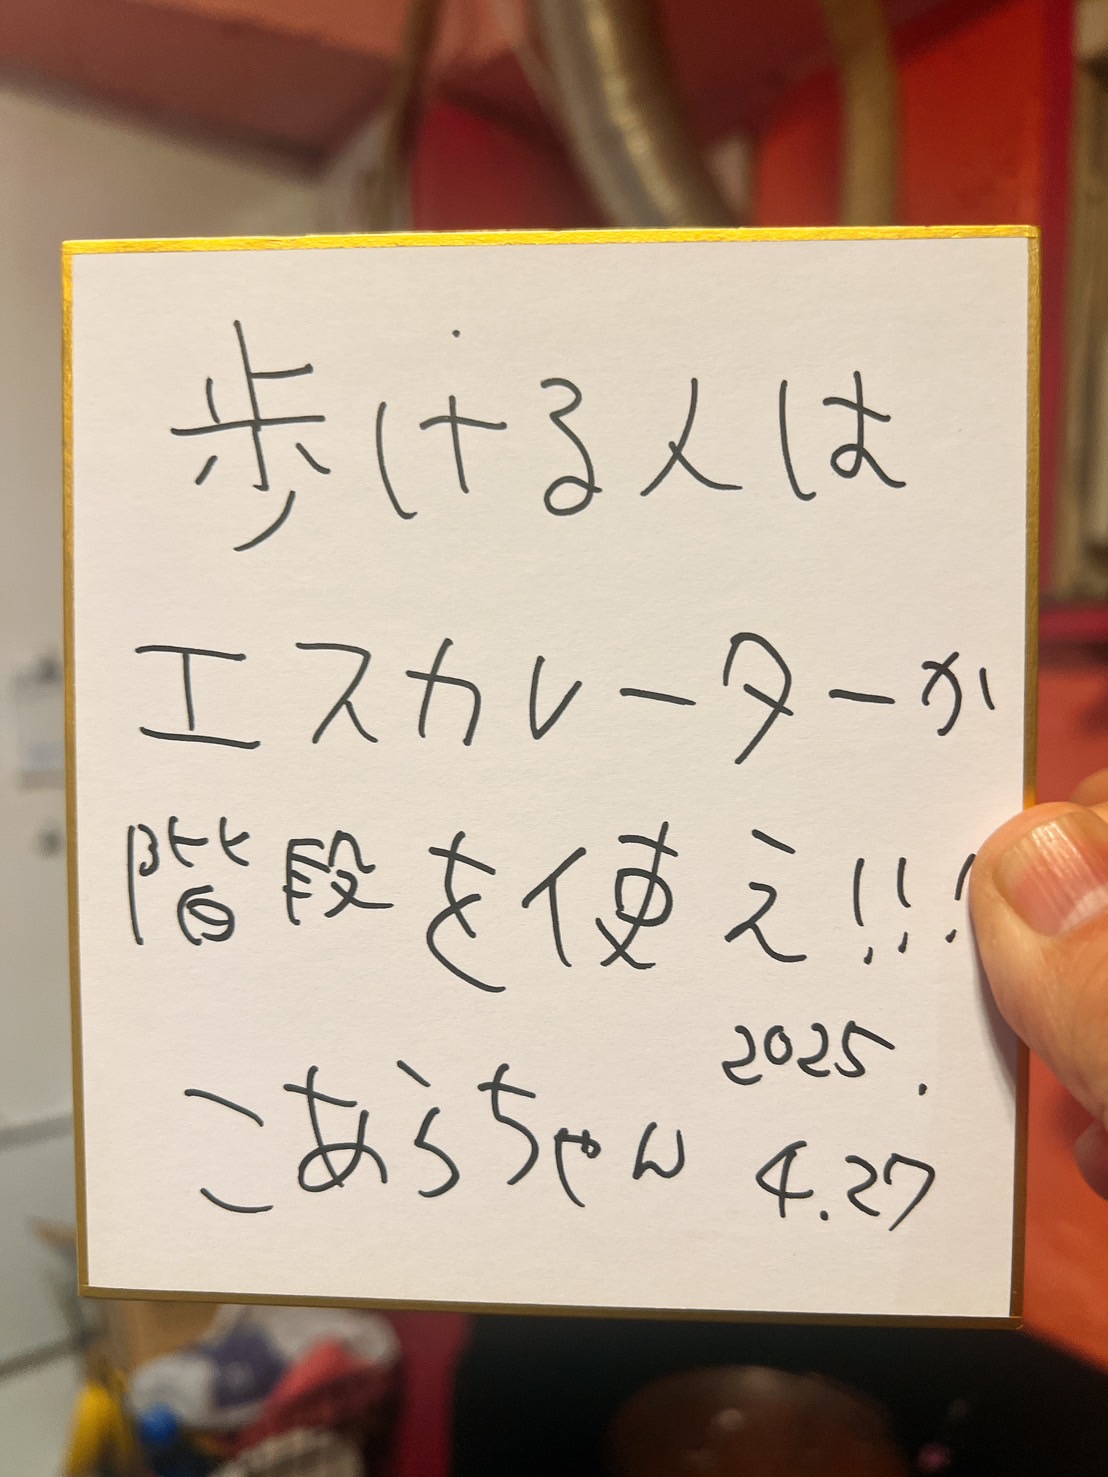 歩ける人は
エスカレーターか
階段を使え!!!
2025.
こあらちゃん 4.27